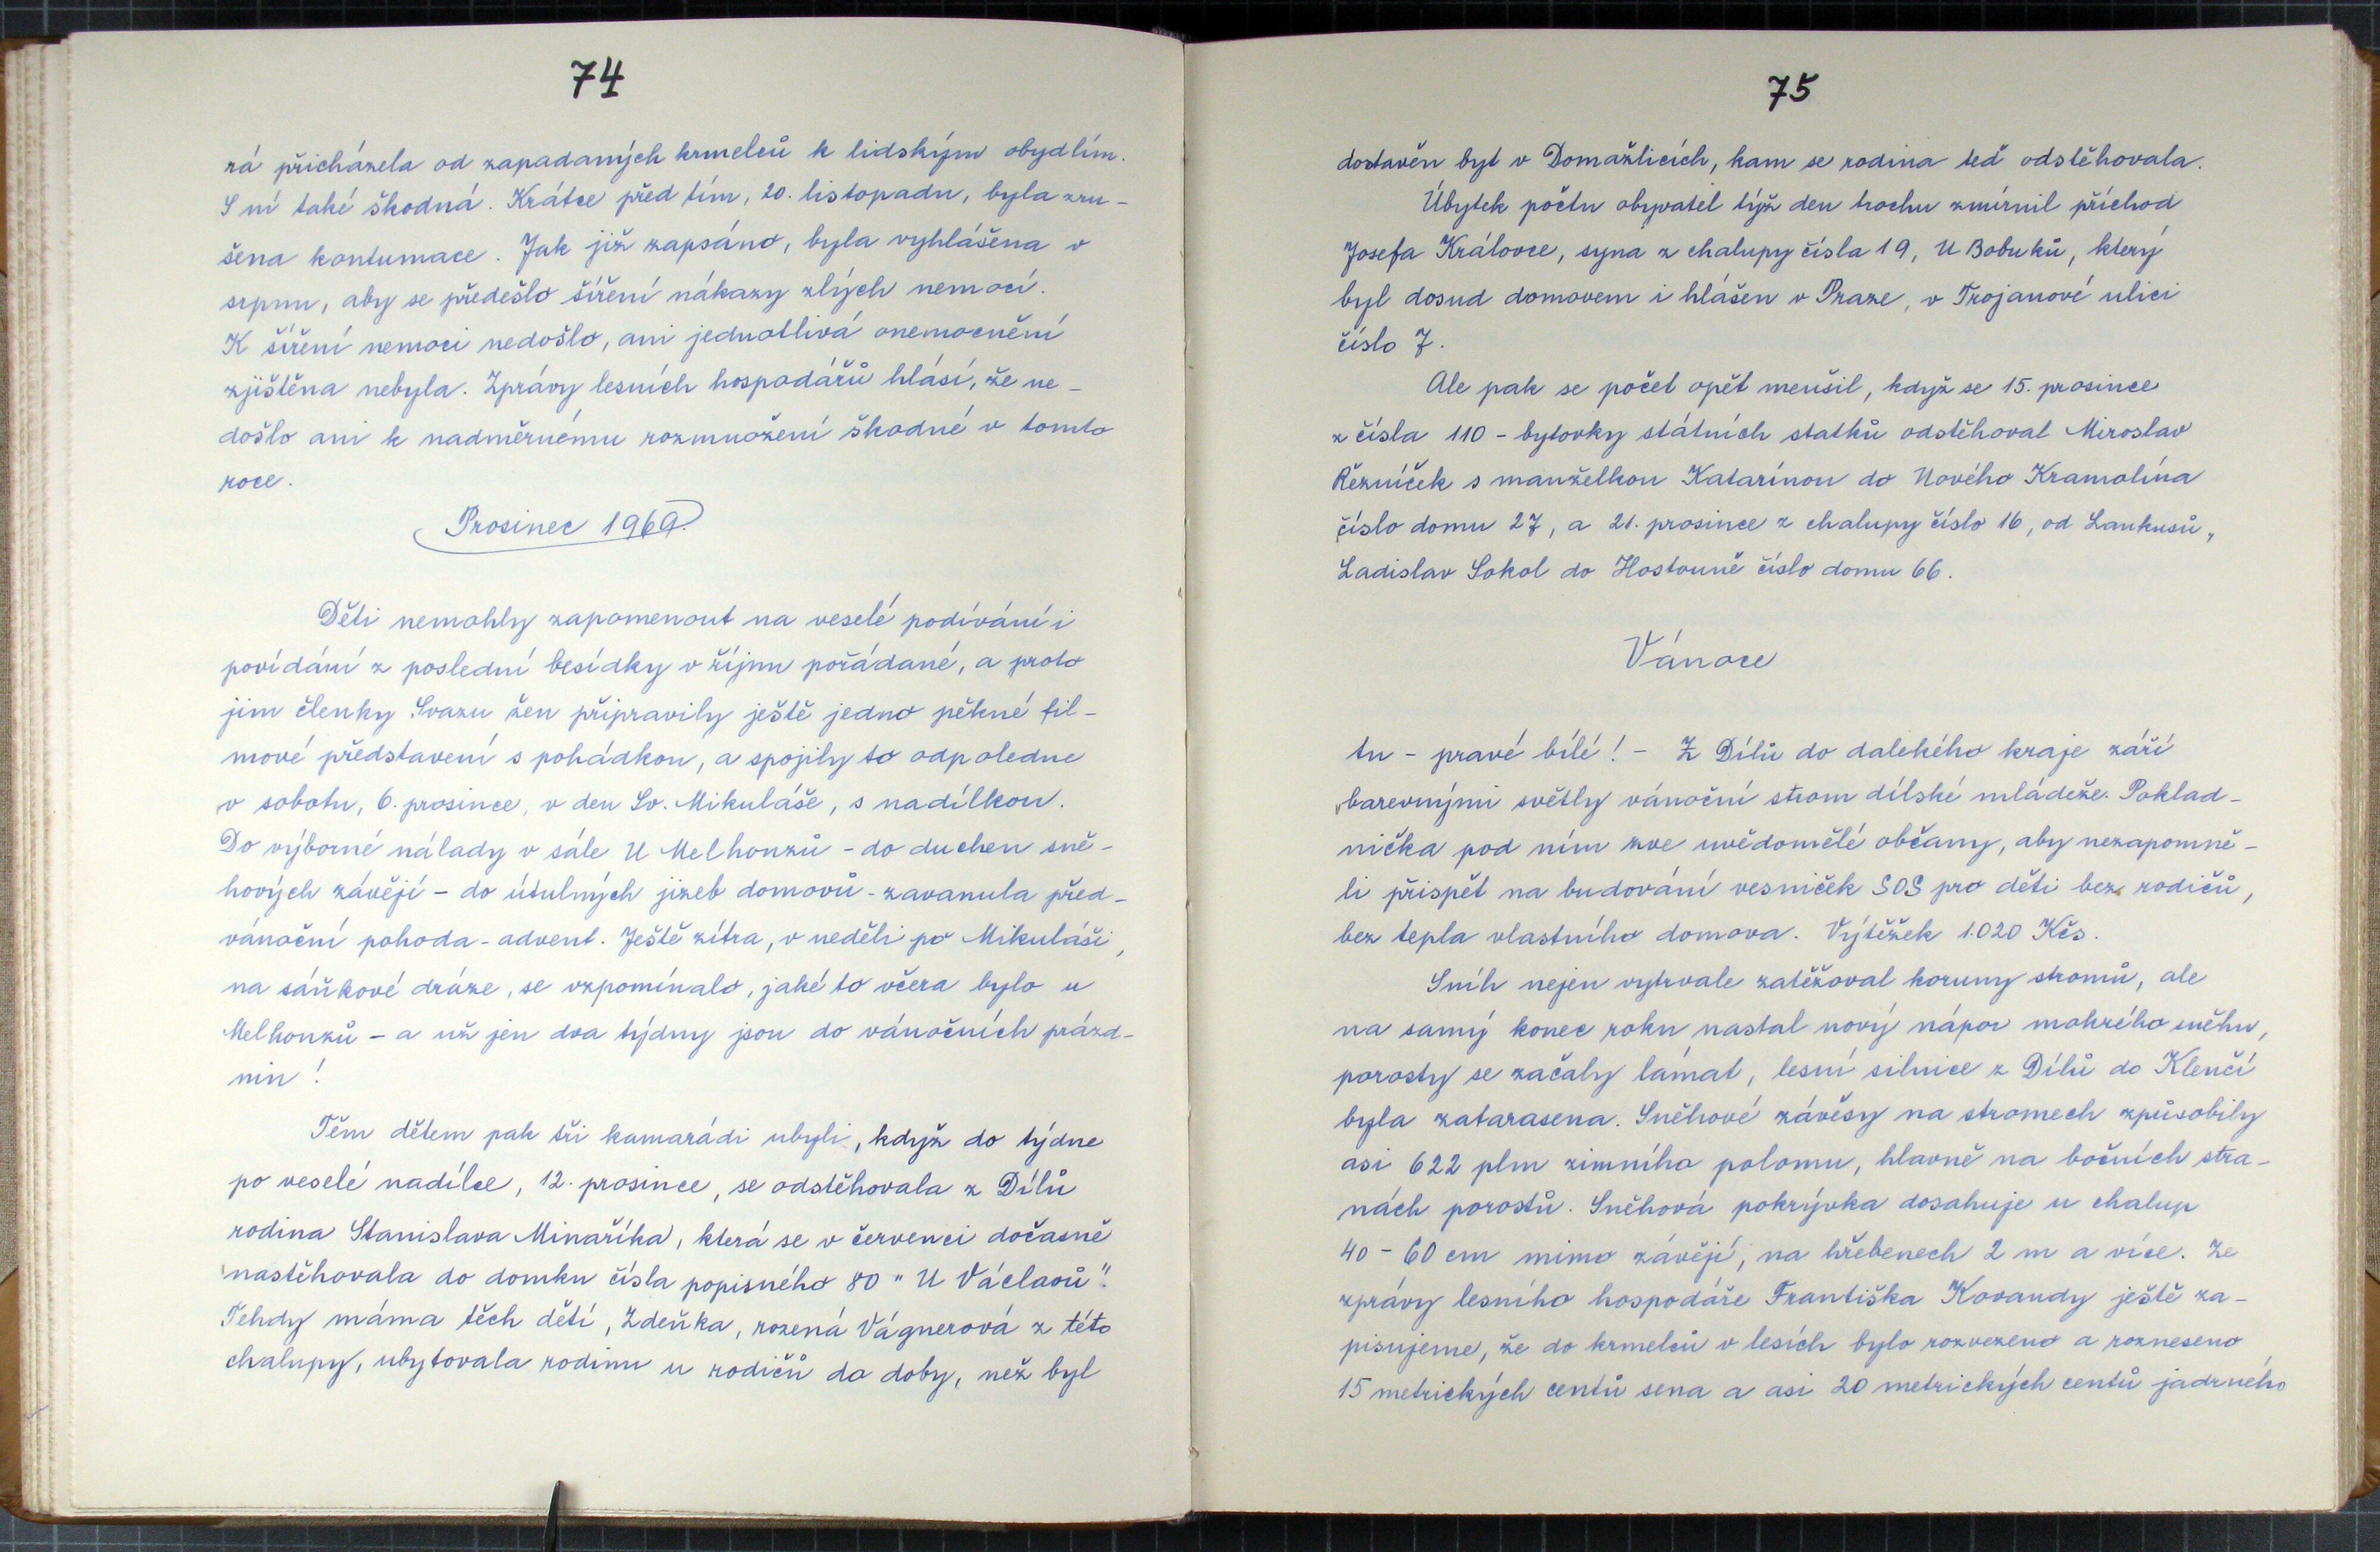 74
rá přicházela od zapadaných krmelců k lidským obydlím.
S ní také škodná. Krátce před tím, 20. listopadu, byla zru-
šena kontumace. Jak již zapsáno, byla vyhlášena v
srpnu, aby se předešlo šíření nákazy zlých nemocí.
K šíření nemoci nedošlo, ani jednotlivá onemocnění
zjištěna nebyla. Zprávy lesních hospodářů hlásí, že ne-
došlo ani k nadměrnému rozmnožení škodné v tomto
roce.
Prosinec 1969.
Děti nemohly zapomenout na veselé podívání i
povídání z poslední besídky v říjnu pořádané, a proto
jim členky Svazu žen připravily ještě jedno pěkné fil-
mové představení s pohádkou, a spojily to odpoledne
v sobotu, 6. prosince, v den Sv. Mikuláše, s nadílkou.
Do výborné nálady v sále U Melhonzů - do duchen sně-
hových závějí - do útulných jizeb domovů - zavanula před-
vánoční pohoda - advent. Ještě zítra, v neděli po Mikuláši,
na sáňkové dráze, se vzpomínalo, jaké to včera bylo u
Melhonzů - a už jen dva týdny jsou do vánočních prázd-
nin!
Těm dětem pak tři kamarádi ubyli, když do týdne
po veselé nadílce, 12. prosince, se odstěhovala z Dílů
rodina Stanislava Minaříka, která se v červenci dočasně
nastěhovala do domku čísla popisného 80 "U Václavů".
Tehdy máma těch dětí, Zdeňka, rozená Vágnerová z této
chalupy, ubytovala rodinu u rodičů do doby, než byl
75
dostavěn byt v Domažlicích, kam se rodina teď odstěhovala.
Úbytek počtu obyvatel týž den trochu zmírnil příchod
Josefa Královce, syna z chalupy čísla 19, U Bobuků, který
byl dosud domovem i hlášen v Praze, v Trojanové ulici
číslo 7.
Ale pak se počet opět menšil, když se 15. prosince
z čísla 110 - bytovky státních statků odstěhoval Miroslav
Řezníček s manželkou Katarínou do Nového Kramolína
číslo domu 27, a 21. prosince z chalupy číslo 16, od Lankusů,
Ladislav Sokol do Hostouně číslo domu 66.
Vánoce
tu - pravé bílé! - Z Dílů do dalekého kraje září
barevnými světly vánoční strom dílské mládeže. Poklad-
nička pod ním zve uvědomělé občany, aby nezapomně-
li přispět na budování vesniček SOS pro děti bez rodičů,
bez tepla vlastního domova. Výtěžek 1.020 Kčs.
Sníh nejen vytrvale zatěžoval koruny stromů, ale
na samý konec roku nastal nový nápor mokrého sněhu,
porosty se začaly lámat, lesní silnice z Dílů do Klenčí
byla zatarasena. Sněhové závěsy na stromech způsobily
asi 622 plm zimního polomu, hlavně na bočních stra-
nách porostů. Sněhová pokrývka dosahuje u chalup
40 - 60 cm mimo závějí, na hřebenech 2 m a více. Ze
zprávy lesního hospodáře Františka Kovandy ještě za-
pisujeme, že do krmelců v lesích bylo rozvezeno a rozneseno
15 metrických centů sena a asi 20 metrických centů jadrného